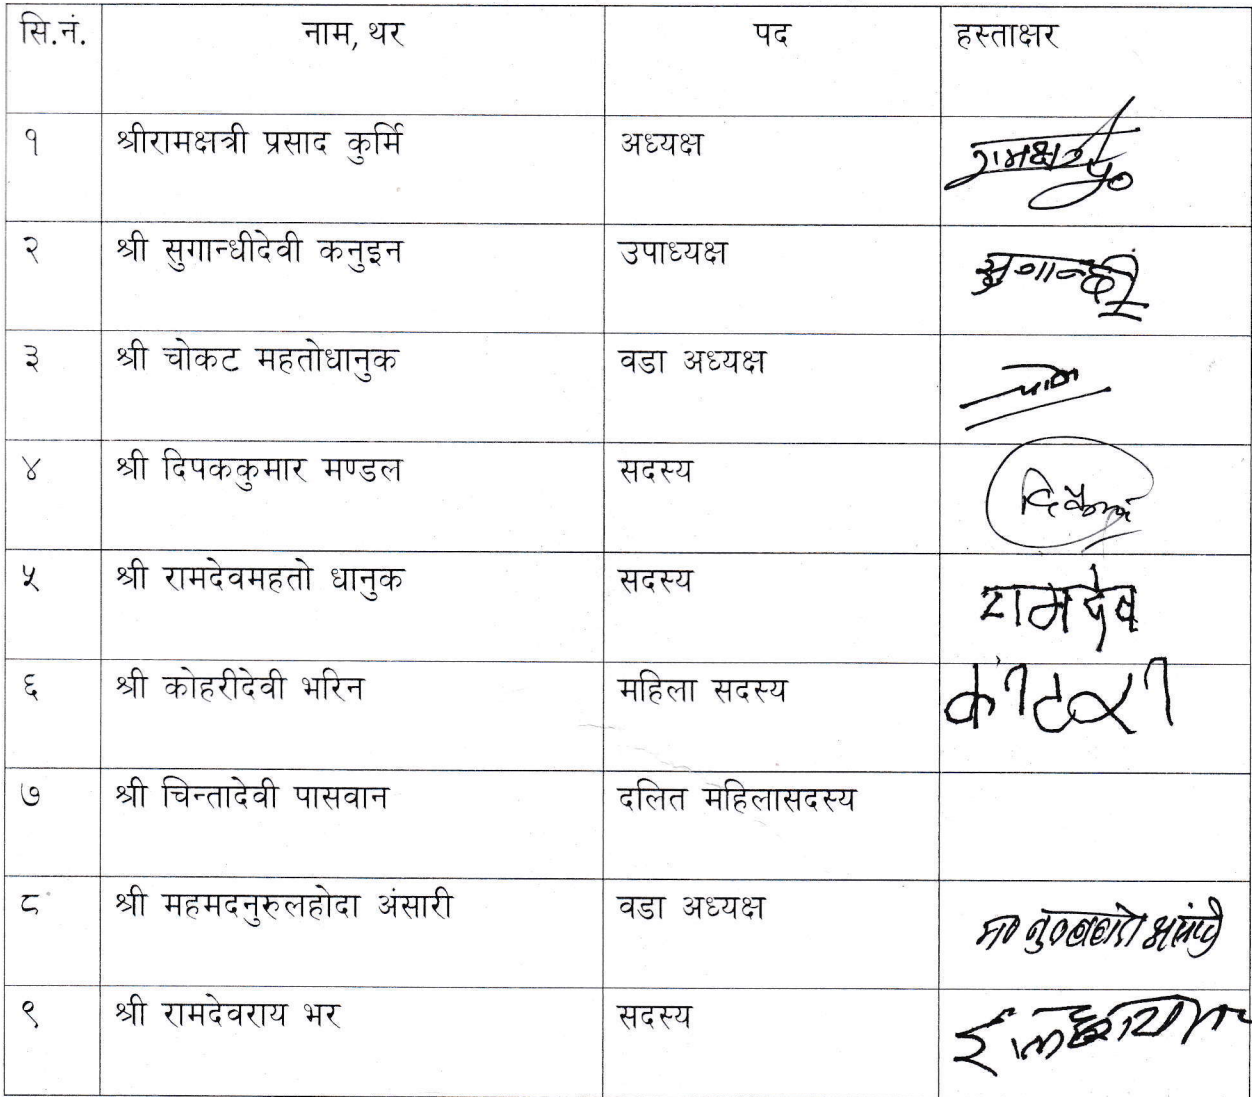 सि.नं. नाम, थर पद हस्ताक्षर
१ श्रीरामक्षत्री प्रसाद कुर्मि अध्यक्ष
२ श्री सुगान्धीदेवी कनुइन उपाध्यक्ष सुगान्धी
३ श्री चोकट महतोधानुक वडा अध्यक्ष
४ श्री दिपककुमार मण्डल सदस्य
५ श्री रामदेवमहतो धानुक सदस्य रामदेव
६ श्री कोहरीदेवी भरिन महिला सदस्य
७ श्री चिन्तादेवी पासवान दलित महिलासदस्य
८ श्री महमदनुरुलहोदा अंसारी वडा अध्यक्ष
९ श्री रामदेवराय भर सदस्य